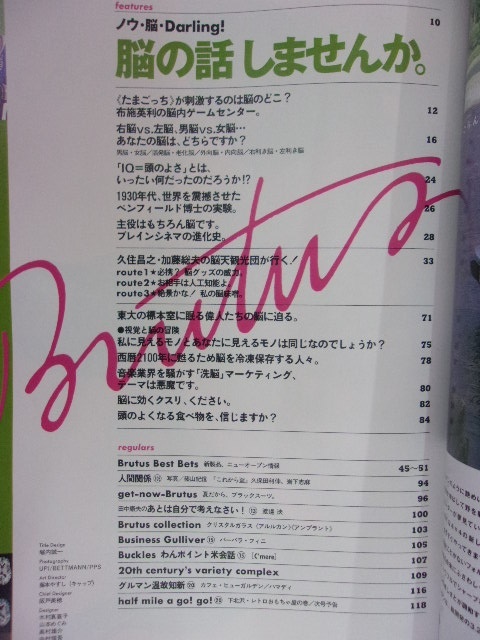 features
ノウ・脳・Darling! 10
脳の話しませんか。
〈たまごっち〉が刺激するのは脳のどこ?
布施英利の脳内ゲームセンター。 12
右脳vs.左脳、男脳vs.女脳…
あなたの脳は、どちらですか? 16
男脳・女脳/活発脳・老化脳/外向脳・内向脳/右利き脳・左利き脳
「IQ=頭のよさ」とは、
いったい何だったのだろうか!? 24
1930年代、世界を震撼させた
ペンフィールド博士の実験。 26
主役はもちろん脳です。
ブレインシネマの進化史。 28
久住昌之・加藤総夫の脳天観光団が行く! 33
route1★必携? 脳グッズの威力。
route2★お相手は人工知能よ。
route3★絶景かな! 私の脳味噌。
Brutus
東大の標本室に眠る偉人たちの脳に迫る。 71
●視覚と脳の冒険
私に見えるモノとあなたに見えるモノは同じなのでしょうか? 75
西暦2100年に甦るため脳を冷凍保存する人々。 78
音楽業界を騒がす「洗脳」マーケティング、
テーマは悪魔です。 80
脳に効くクスリ、ください。 82
頭のよくなる食べ物を、信じますか? 84
regulars
Brutus Best Bets 新製品、ニューオープン情報 45〜51
人間関係 写真/篠山紀信 「これから盗」久保田利伸、 94
get-now-Brutus 夏だから、ブラックスーツ。 96
田中康夫のあとは自分で考えなさい! 渡邊 渉 100
Brutus collection クリスタルガラス〈アルルカン〉〈アンプラント〉 103
Business Gulliver バーバラ・フィニ 105
Buckles わんポイント米会話 [C'mere] 107
20th century's variety complex 109
グルマン温故知新 カフェ・ヒューガルデン/ハマディ 116
half mile a go! go! 下北沢・レトロおもちゃ屋の巻/次号予告 118
Title Design
堀内誠一
Photographs
UPI/BETTMANN/PPS
Art Director
藤本やすし(キャップ)
Chief Designer
坂戸美穂
Designer
木村真喜子
山本めぐみ